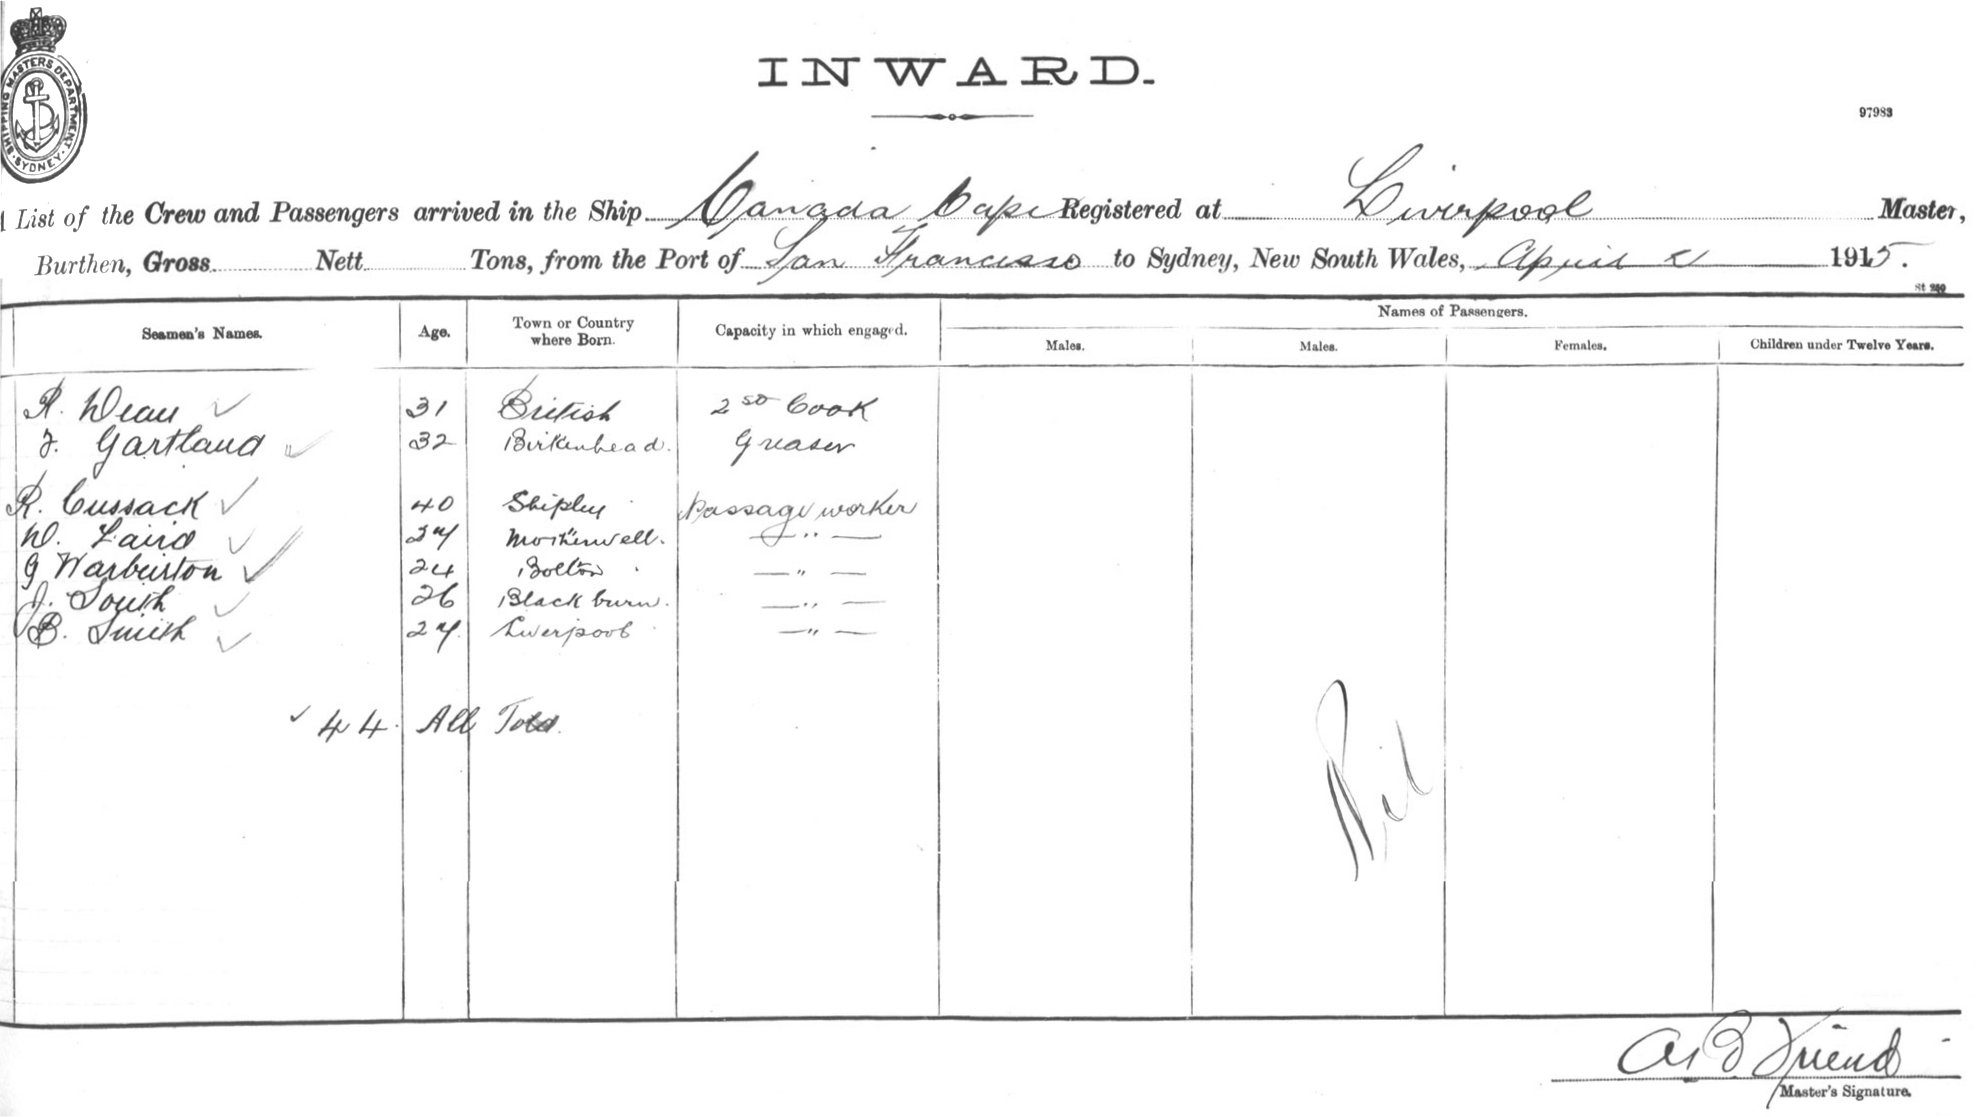 SHIPPING MASTERS DEPARTMENT
SYDNEY
INWARD.
97983
List of the Crew and Passengers arrived in the Ship Canada Cape Registered at Liverpool Master,
Burthen, Gross Nett Tons, from the Port of San Francisco to Sydney, New South Wales, April 1915.
St 240
Seamen's Names. Age. Town or Country where Born. Capacity in which engaged. Names of Passengers.
Males. Males. Females. Children under Twelve Years.
R. Dean ✓ 31 British 2nd Cook
J. Gartland ✓ 32 Birkenhead. Greaser
R. Cussack ✓ 40 Shipley Passage worker
W. Laird ✓ 27 Motherwell. — " —
G Warburton ✓ 24 Bolton — " —
J. South ✓ 26 Blackburn. — " —
B. Smith ✓ 27. Liverpool — " —
✓ 44. All Told.
Nil
A B Friend
Master's Signature.